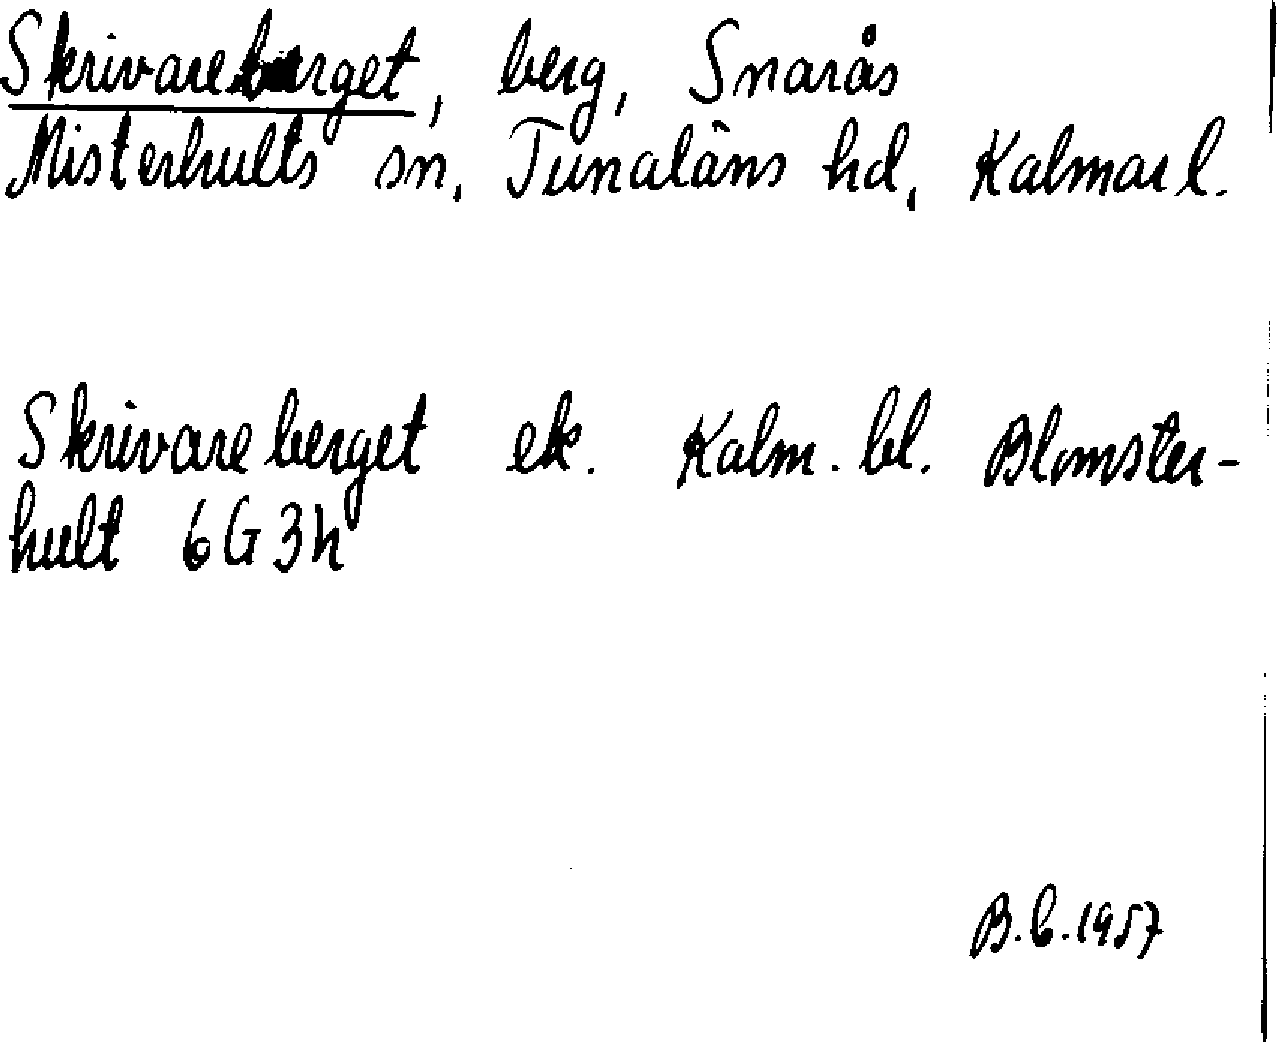 Skrivareberget, berg, Snarås
Misterhults sn, Tunaläns hd, Kalmar l.
Skrivareberget ek. Kalm. bl. Blomster-
hult 6G3h
B.C.1957